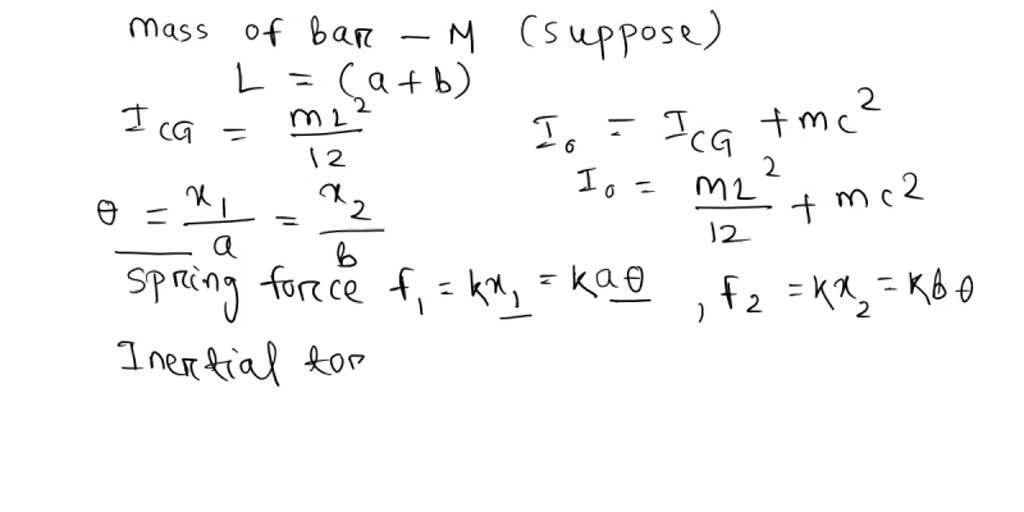 mass of bar - M (suppose)
L = (a+b)
I_CG = mL²/12
I₀ = I_CG + mc²
I₀ = mL²/12 + mc²
θ = x₁/a = x₂/b
spring force f₁ = kx₁ = kaθ , f₂ = kx₂ = kbθ
Inertial tor